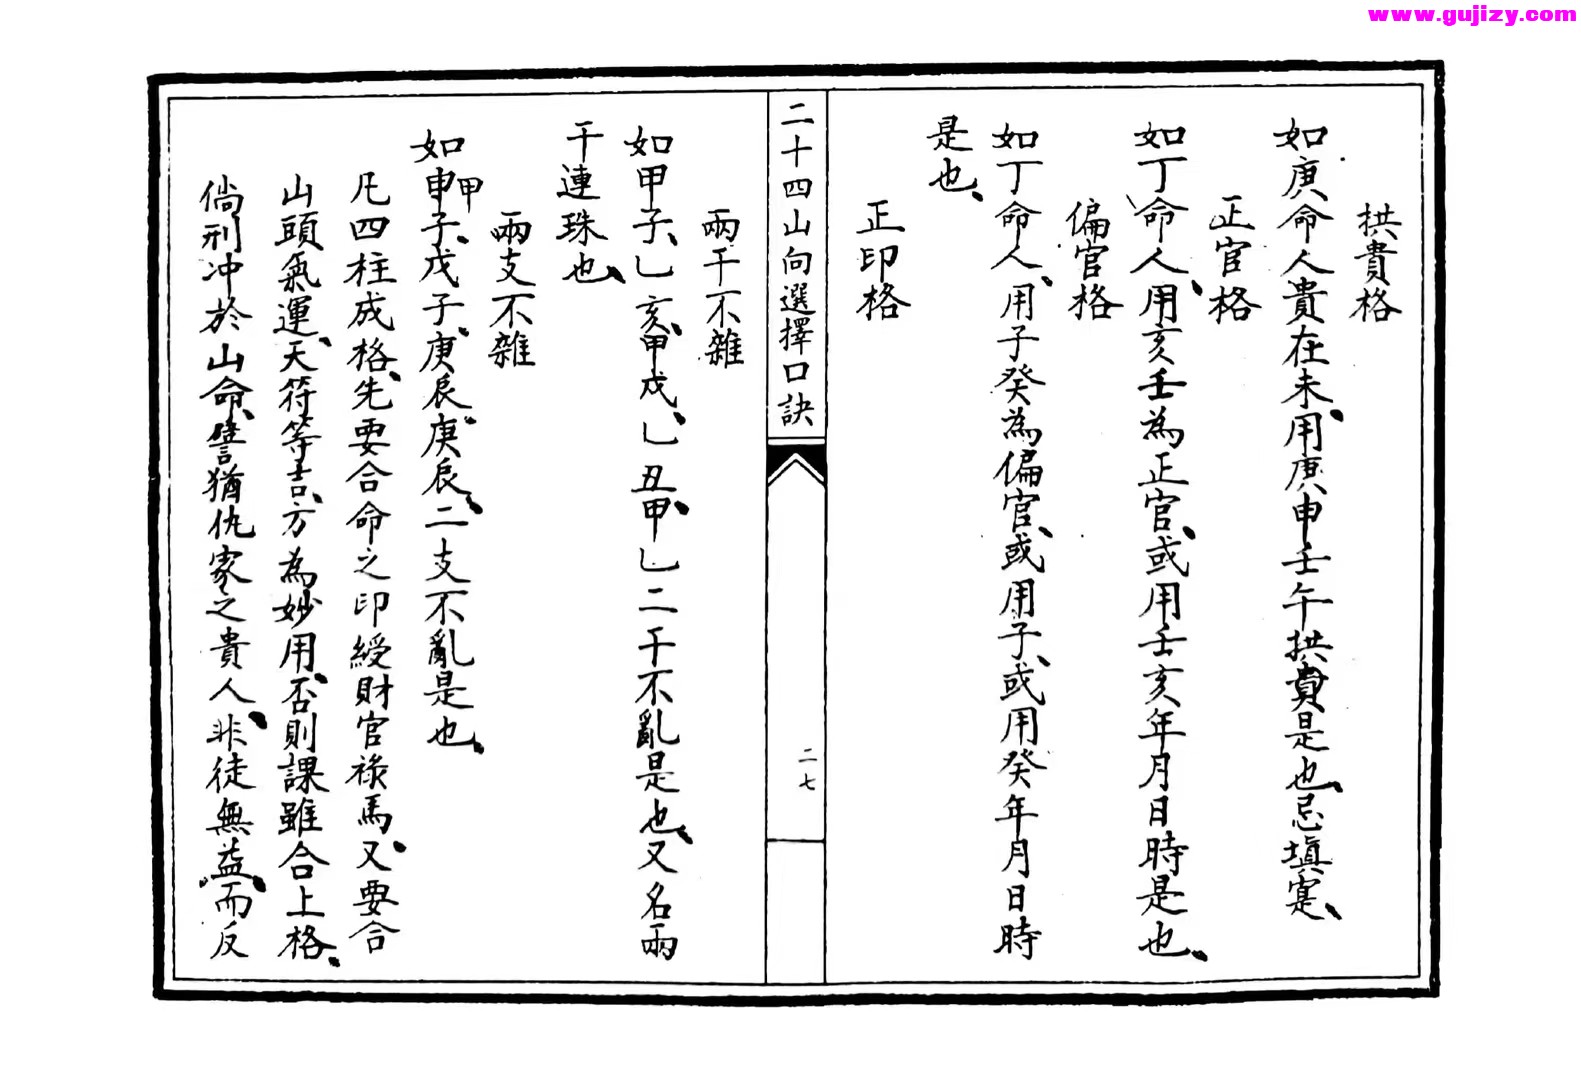 www.gujizy.com
拱貴格
如庚命人貴在未、用庚申壬午拱貴是也、忌填寔、
正官格
如丁命人、用亥壬為正官、或用壬亥年月日時是也、
偏官格
如丁命人、用子癸為偏官、或用子、或用癸年月日時
是也、
正印格
二十四山向選擇口訣
二七
兩干不雜
如甲子、乙亥、甲戌、乙丑、甲乙二干不亂是也、又名兩
干連珠也、
兩支不雜
如甲申子、戊子、庚辰、庚辰、二支不亂是也、
凡四柱成格、先要合命之印綬財官祿馬、又要合
山頭氣運、天符等吉、方為妙用、否則課雖合上格、
倘刑冲於山命、譬猶仇家之貴人、非徒無益、而反